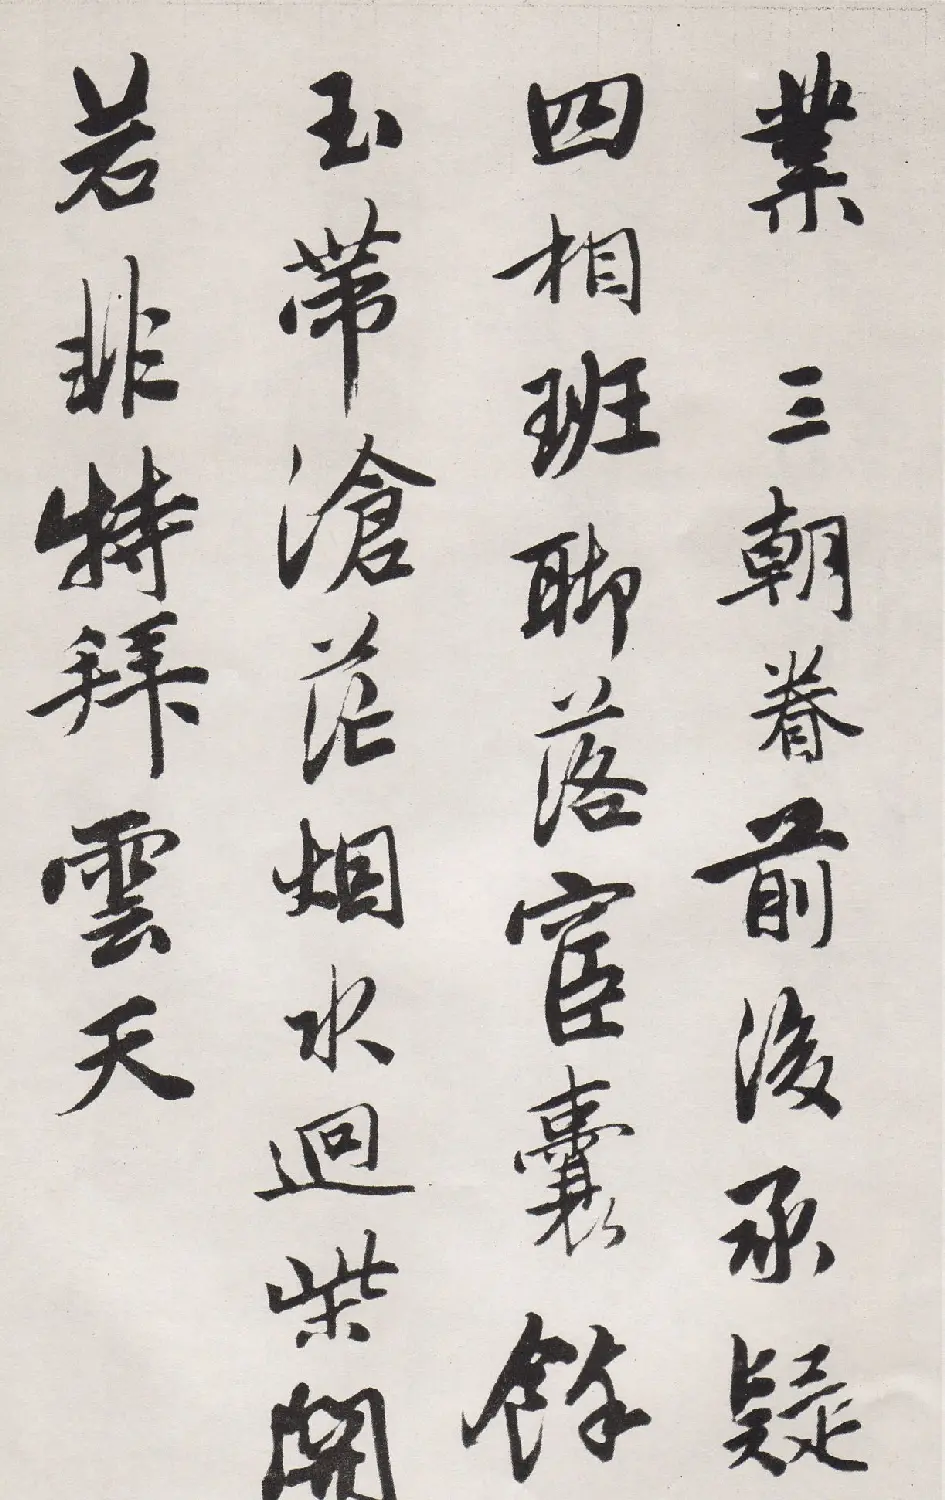 業三朝眷前後承疑
四相班聊落宦囊餘
玉帶滄茫烟水迥柴關
若非特拜雲天